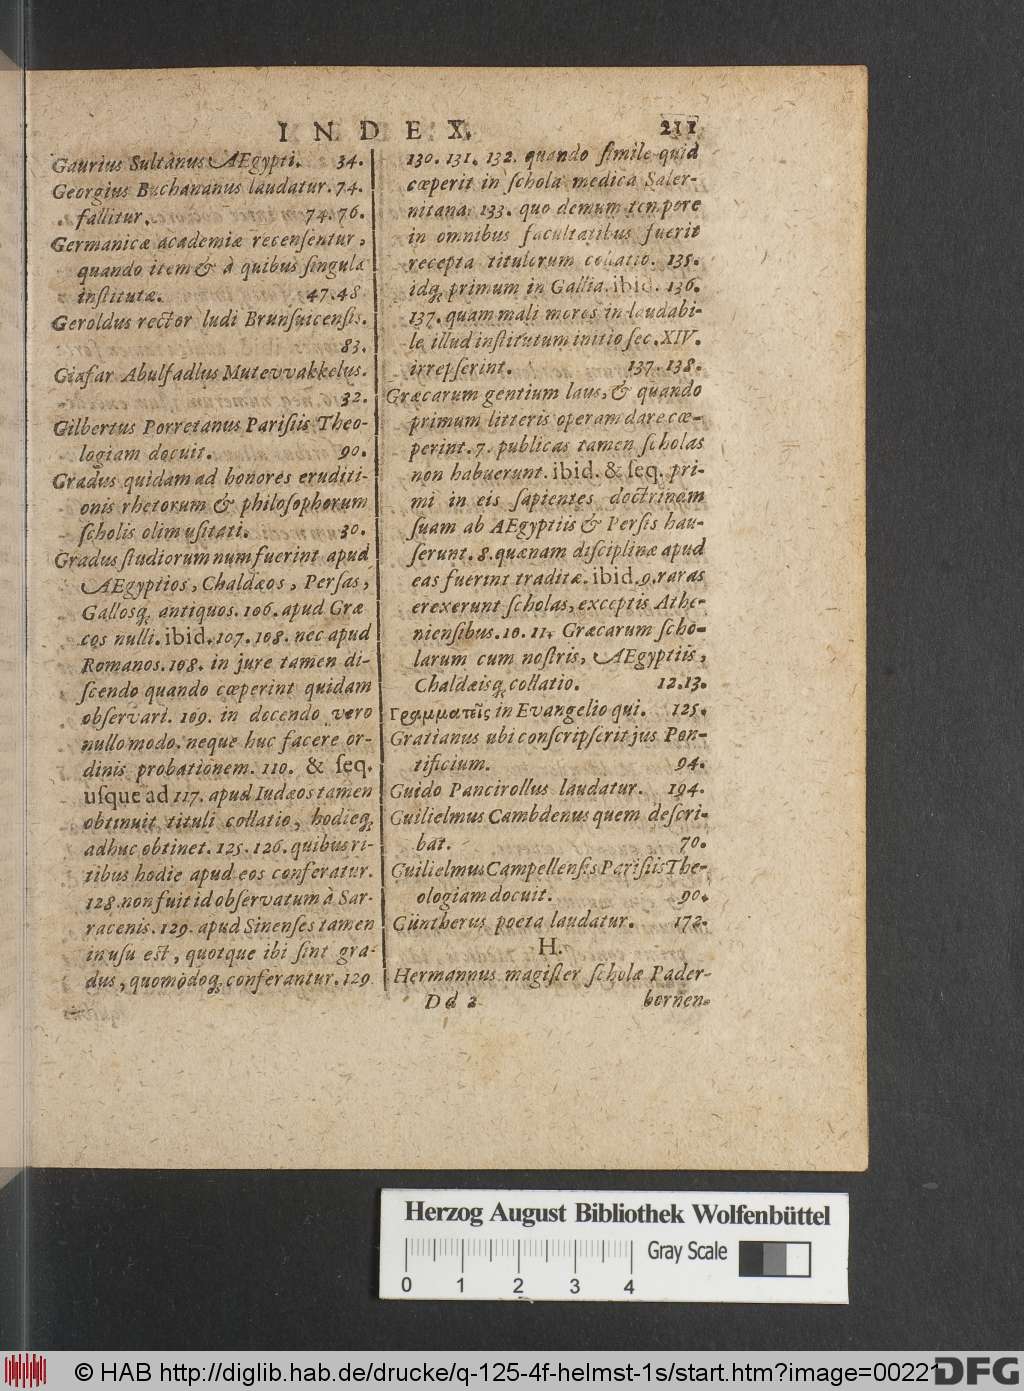 INDEX. 211
Gaurius Sultanus AEgypti. 34.
Georgius Buchananus laudatur. 74.
fallitur. 74. 76.
Germanicæ academiæ recensentur,
quando item & à quibus singulæ
institutæ. 47. 48
Geroldus rector ludi Brunsuicensis.
83.
Giafar Abulfadlus Mutevvakkelus.
32.
Gilbertus Porretanus Parisiis Theo-
logiam docuit. 90.
Gradus quidam ad honores eruditi-
onis rhetorum & philosophorum
scholis olim usitati. 30.
Gradus studiorum num fuerint apud
AEgyptios, Chaldæos, Persas,
Gallosq; antiquos. 106. apud Græ
cos nulli. ibid. 107. 108. nec apud
Romanos. 108. in jure tamen di-
scendo quando cœperint quidam
observari. 109. in docendo vero
nullo modo. neque huc facere or-
dinis probationem. 110. & seq.
usque ad 117. apud Iudæos tamen
obtinuit tituli collatio, hodieq;
adhuc obtinet. 125. 126. quibus ri-
tibus hodie apud eos conferatur.
128. non fuit id observatum à Sar-
racenis. 129. apud Sinenses tamen
in usu est, quotque ibi sint gra-
dus, quomodoq; conferantur. 129
130. 131. 132. quando simile quid
cœperit in schola medica Saler-
nitana. 133. quo demum tempore
in omnibus facultatibus fuerit
recepta titulorum collatio. 135.
idq; primum in Gallia. ibid. 136.
137. quam mali mores in laudabi-
le illud institutum initio sec. XIV.
irrepserint. 137. 138.
Græcarum gentium laus, & quando
primum litteris operam dare cœ-
perint. 7. publicas tamen scholas
non habuerunt. ibid. & seq. pri-
mi in eis sapientes doctrinam
suam ab AEgyptiis & Persis hau-
serunt. 8. quænam disciplinæ apud
eas fuerint traditæ. ibid. 9. raras
erexerunt scholas, exceptis Athe-
niensibus. 10. 11. Græcarum scho-
larum cum nostris, AEgyptiis,
Chaldæisq; collatio. 12. 13.
Γραμματεῖς in Evangelio qui. 125.
Gratianus ubi conscripserit jus Pon-
tificium. 94.
Guido Pancirollus laudatur. 194.
Guilielmus Cambdenus quem descri-
bat. 70.
Guilielmus Campellensis Parisiis The-
ologiam docuit. 90.
Güntherus poeta laudatur. 172.
H.
Hermannus magister scholæ Pader-
Dd 2 bornen-
Herzog August Bibliothek Wolfenbüttel
Gray Scale
0 1 2 3 4
© HAB http://diglib.hab.de/drucke/q-125-4f-helmst-1s/start.htm?image=00221
DFG